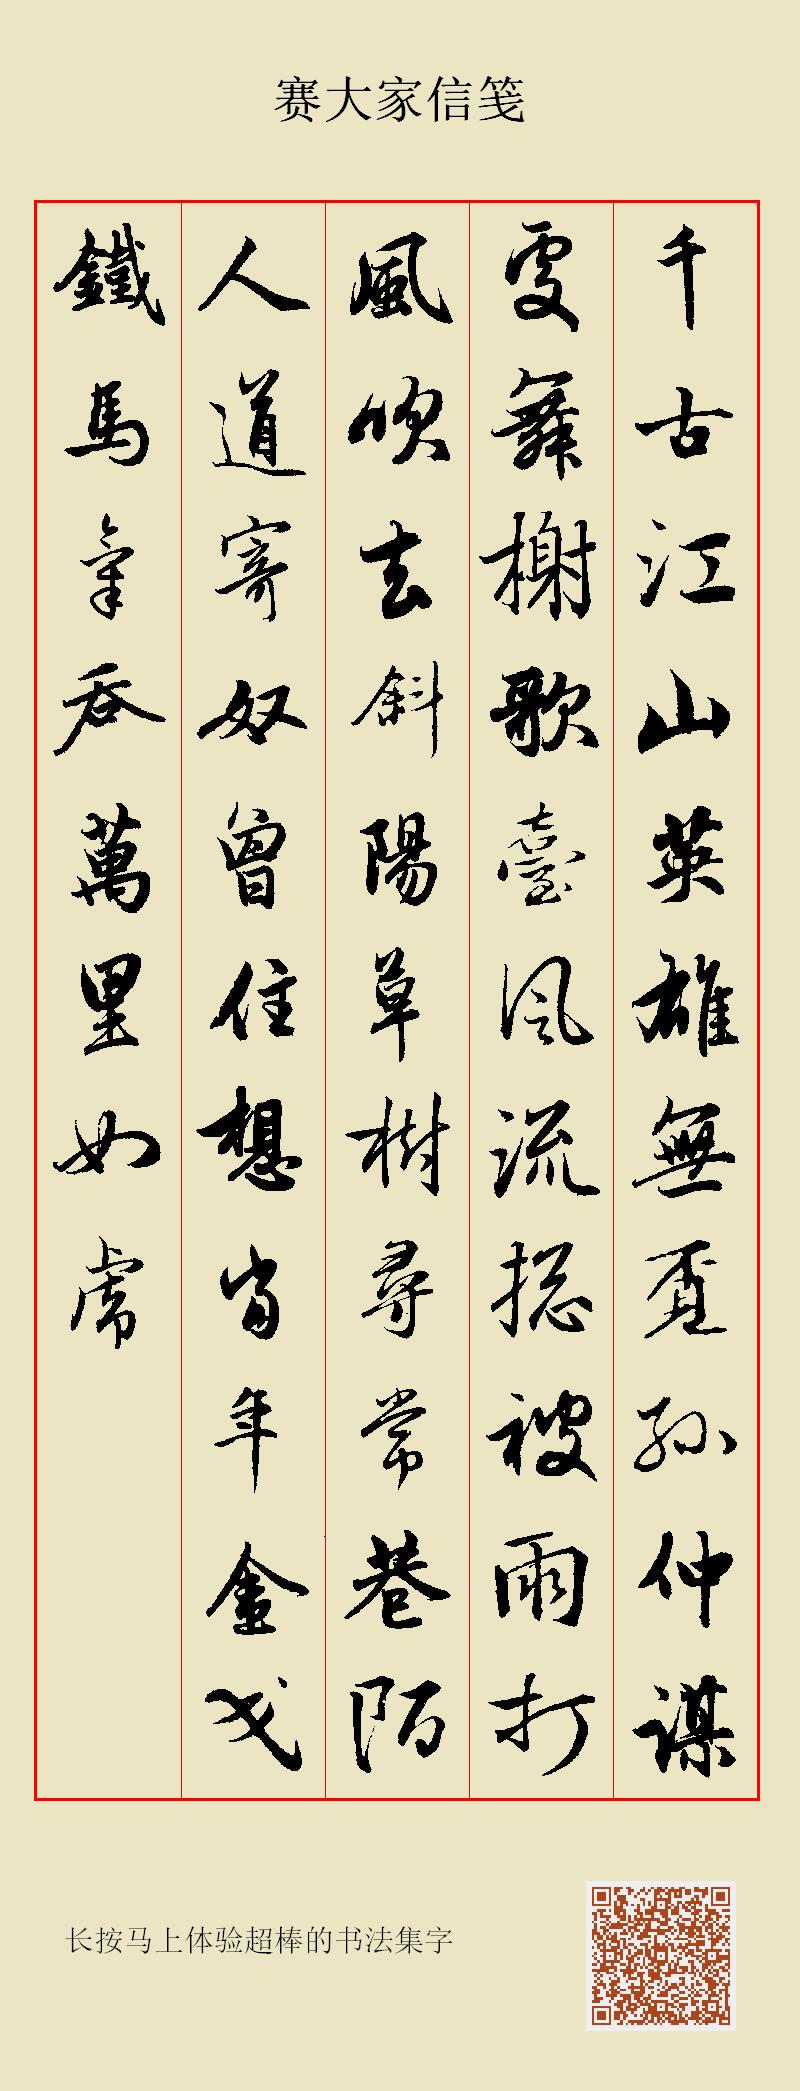 赛大家信笺
千古江山英雄無覔孫仲謀
處舞榭歌臺風流總被雨打
風吹去斜陽草樹尋常巷陌
人道寄奴曾住想當年金戈
鐵馬氣吞萬里如虎
长按马上体验超棒的书法集字